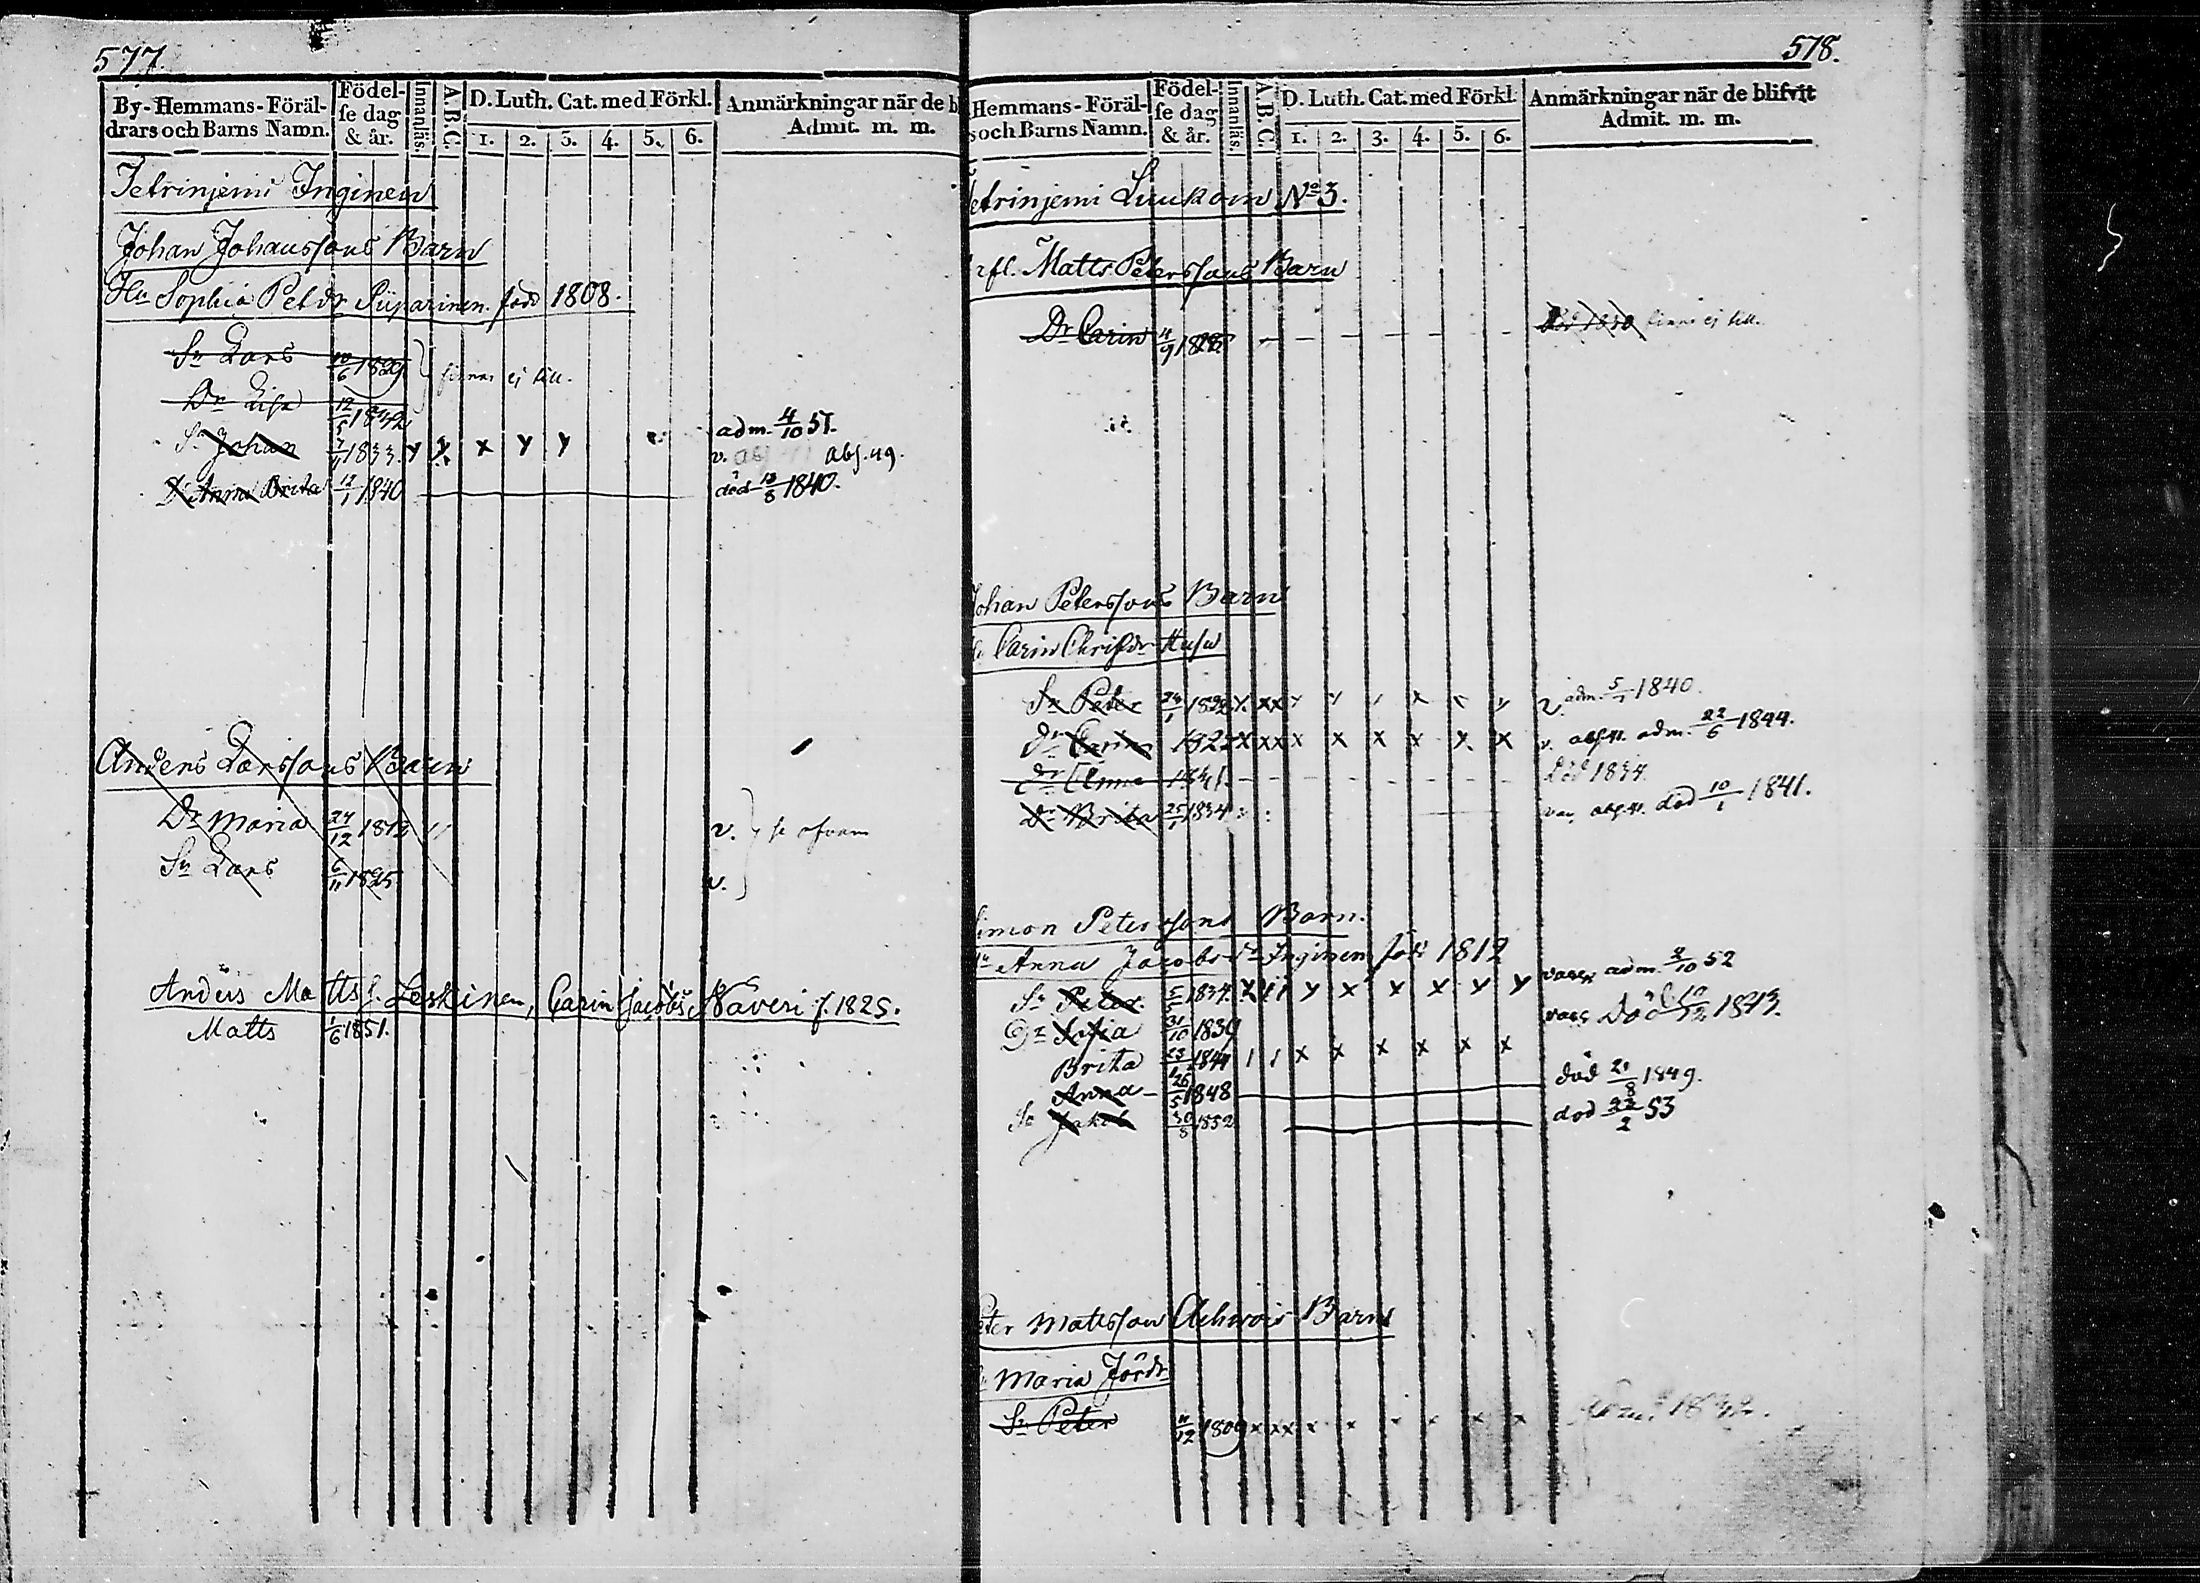 577.
By-Hemmans-Föräl-
drars och Barns Namn.
Födel-
se dag
& år.
Innanläs.
A.B.C.
D. Luth. Cat. med Förkl.
1. 2. 3. 4. 5. 6.
Anmärkningar när de b
Admit. m. m.
Tetrinjemi Inginen
Johan Johanssons Barn
Hu Sophia Petdr Siiparinen. född 1808.
Sn Lars 10/6 1829
finnas ej till.
Dr Lisa 12/5 1832
Sn Johan 7/11 1833. y x x y y adm. 4/10 51.
v. abs. 49.
Dr Anna Brita 12/1 1840 död 13/8 1840.
Anders Larssons Barn
Dr Maria 27/12 1813 v.
se ofvan
Sn Lars 6/11 1825 v.
Anders Matts s. Leskinen, Carin Jacobs Näveri f. 1825.
Matts 1/6 1851.
578.
Hemmans-Föräl-
s och Barns Namn.
Födel-
se dag
& år.
Innanläs.
A.B.C.
D. Luth. Cat. med Förkl.
1. 2. 3. 4. 5. 6.
Anmärkningar när de blifvit
Admit. m. m.
etrinjemi Luukoin No 3.
rfl. Matts Peterssons Barn
Dr Carin 4/9 död 1830 finns ej till.
Johan Peterssons Barn
Carin Christdr Husu
Sn Peter 24/1 1822 x. xx v. adm. 5/7 1840.
Dr Carin 1827 x xx x x x x x x v. abs. 41. adm. 22/6 1844.
Dr Anna 1831. död 1834.
Dr Brita 25/1 1834 abs. 41. död 10/1 1841.
Simon Peterssons Barn.
Hu Anna Jacobsdr Inginen född 1812
Sn Peter 5/5 1834. y x x x y y adm. 2/10 52
Dr Sofia 31/10 1839 vacc Död 1843.
Brita 1844 / / x x x x x x
Anna - 26/5 1848 död 21/8 1849.
Sn Jakob 30/8 1852 död 22/2 53
eter Mattsson Achvois Barn
Maria Jördr
Sn Peter 11/12 1809 x xx x x x x x x